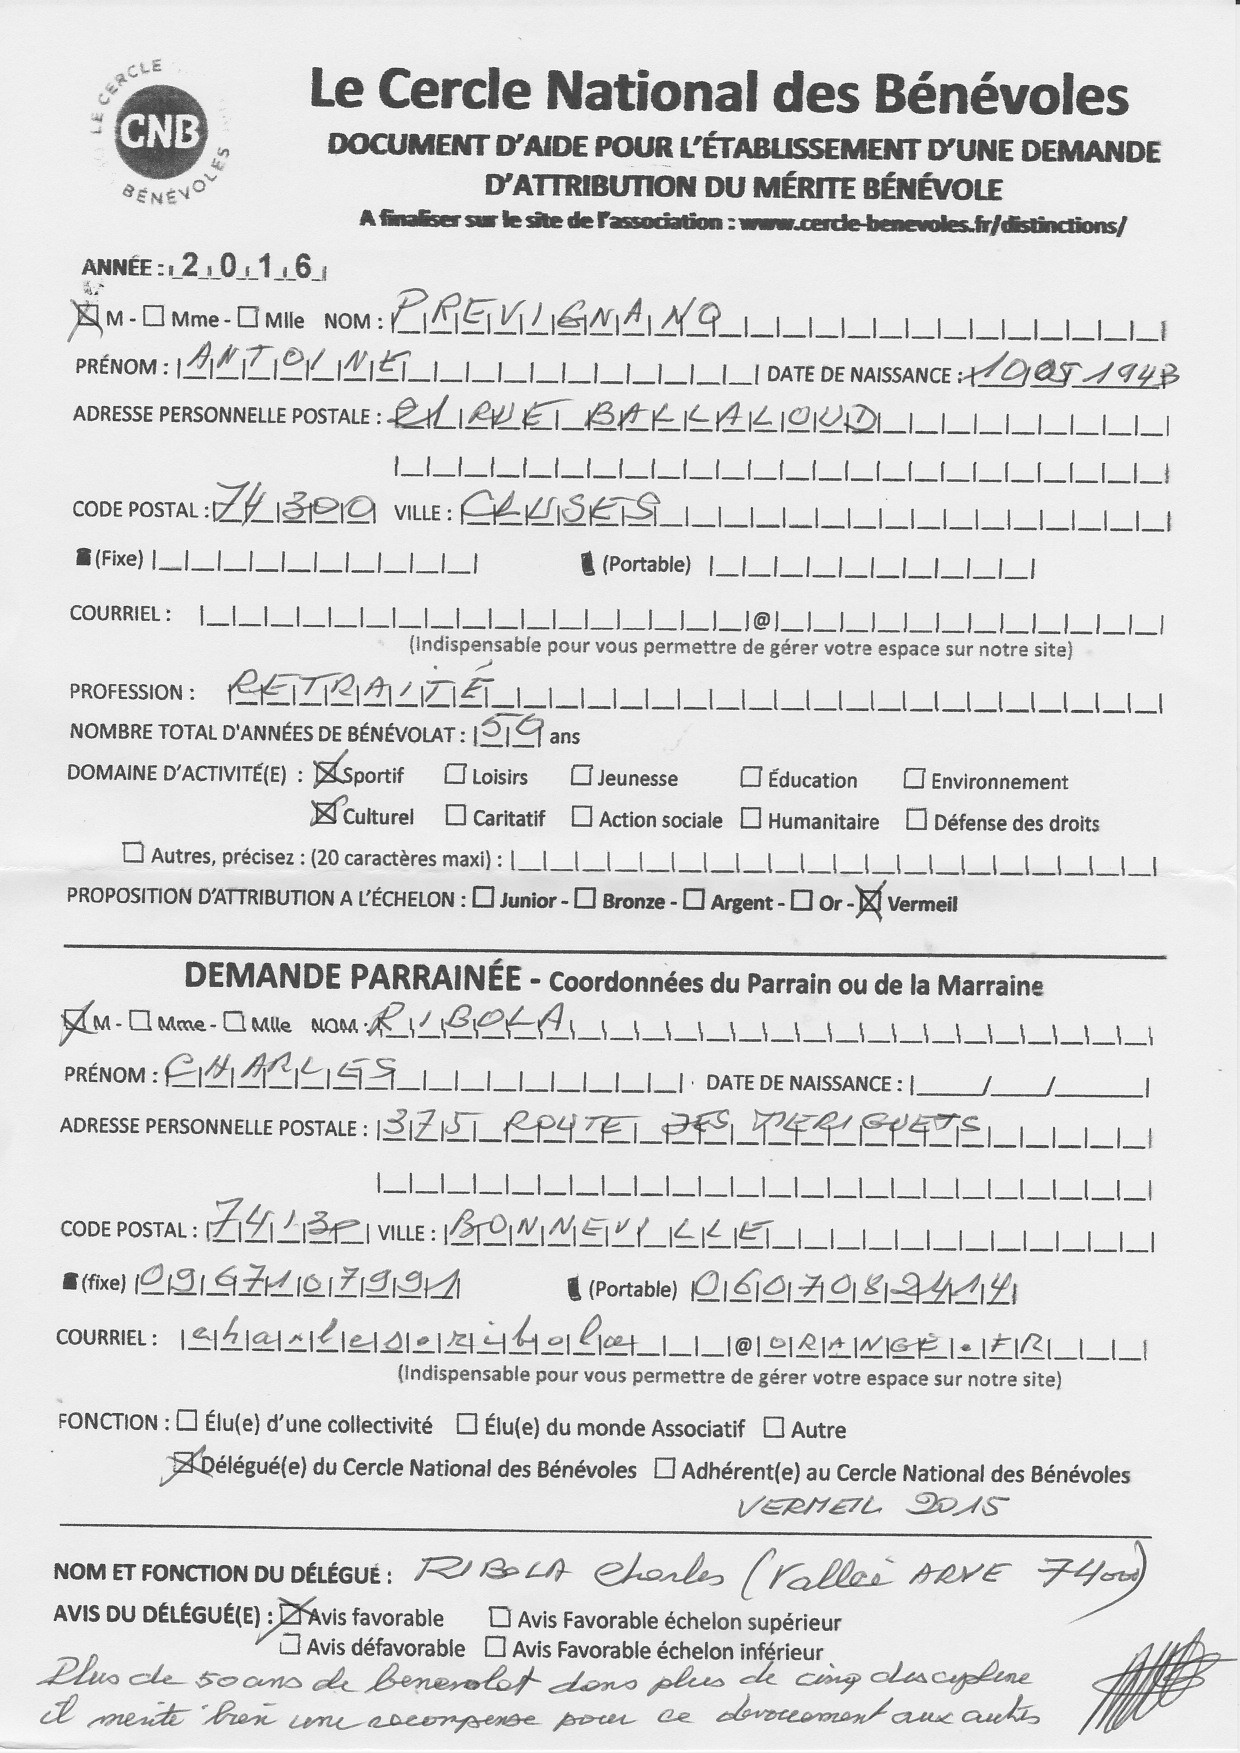 LE CERCLE
CNB
BÉNÉVOLES
Le Cercle National des Bénévoles
DOCUMENT D'AIDE POUR L'ÉTABLISSEMENT D'UNE DEMANDE
D'ATTRIBUTION DU MÉRITE BÉNÉVOLE
A finaliser sur le site de l'association : www.cercle-benevoles.fr/distinctions/
ANNÉE : 2016
M - Mme - Mlle NOM : PREVIGNANO
PRÉNOM : ANTOINE DATE DE NAISSANCE : 10 05 1943
ADRESSE PERSONNELLE POSTALE : RUE BALLALOUD
CODE POSTAL : 74300 VILLE : CLUSES
(Fixe) (Portable)
COURRIEL : @
(Indispensable pour vous permettre de gérer votre espace sur notre site)
PROFESSION : RETRAITÉ
NOMBRE TOTAL D'ANNÉES DE BÉNÉVOLAT : 59 ans
DOMAINE D'ACTIVITÉ(E) : Sportif Loisirs Jeunesse Éducation Environnement
Culturel Caritatif Action sociale Humanitaire Défense des droits
Autres, précisez : (20 caractères maxi) :
PROPOSITION D'ATTRIBUTION A L'ÉCHELON : Junior - Bronze - Argent - Or - Vermeil
DEMANDE PARRAINÉE - Coordonnées du Parrain ou de la Marraine
M - Mme - Mlle NOM : RIBOLA
PRÉNOM : CHARLES DATE DE NAISSANCE : / /
ADRESSE PERSONNELLE POSTALE : 375 ROUTE DES
CODE POSTAL : 74130 VILLE : BONNEVILLE
(fixe) 0967107991 (Portable) 0607082414
COURRIEL : charles.ribola @ ORANGE.FR
(Indispensable pour vous permettre de gérer votre espace sur notre site)
FONCTION : Élu(e) d'une collectivité Élu(e) du monde Associatif Autre
Délégué(e) du Cercle National des Bénévoles Adhérent(e) au Cercle National des Bénévoles
VERMEIL 2015
NOM ET FONCTION DU DÉLÉGUÉ : RIBOLA Charles (Vallée ARVE 74000)
AVIS DU DÉLÉGUÉ(E) : Avis favorable Avis Favorable échelon supérieur
Avis défavorable Avis Favorable échelon inférieur
Plus de 50 ans de benevolat dans plus de cinq discypline
il merite bien une recompense pour ce devouement aux autres